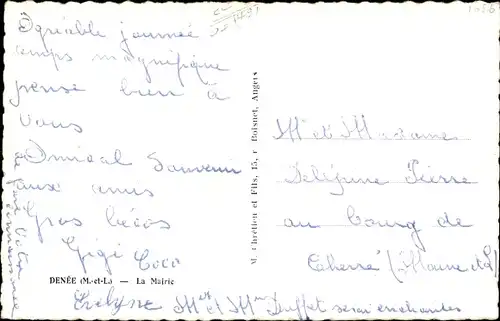 Agréable journée
temps magnifique
pense bien à
vous
Amical Souvenir
aux amis
Gros bécos
Gigi Coco
DENÉE (M.-et-L.) — La Mairie
Evelyne Mr et Mme Duffet serai enchantés
de faire votre
connaissance
M. Chrétien et Fils, 15, r. Boisnet, Angers
Mr et Madame
Deléjune Pierre
au bourg de
Cherré (Maine et L)